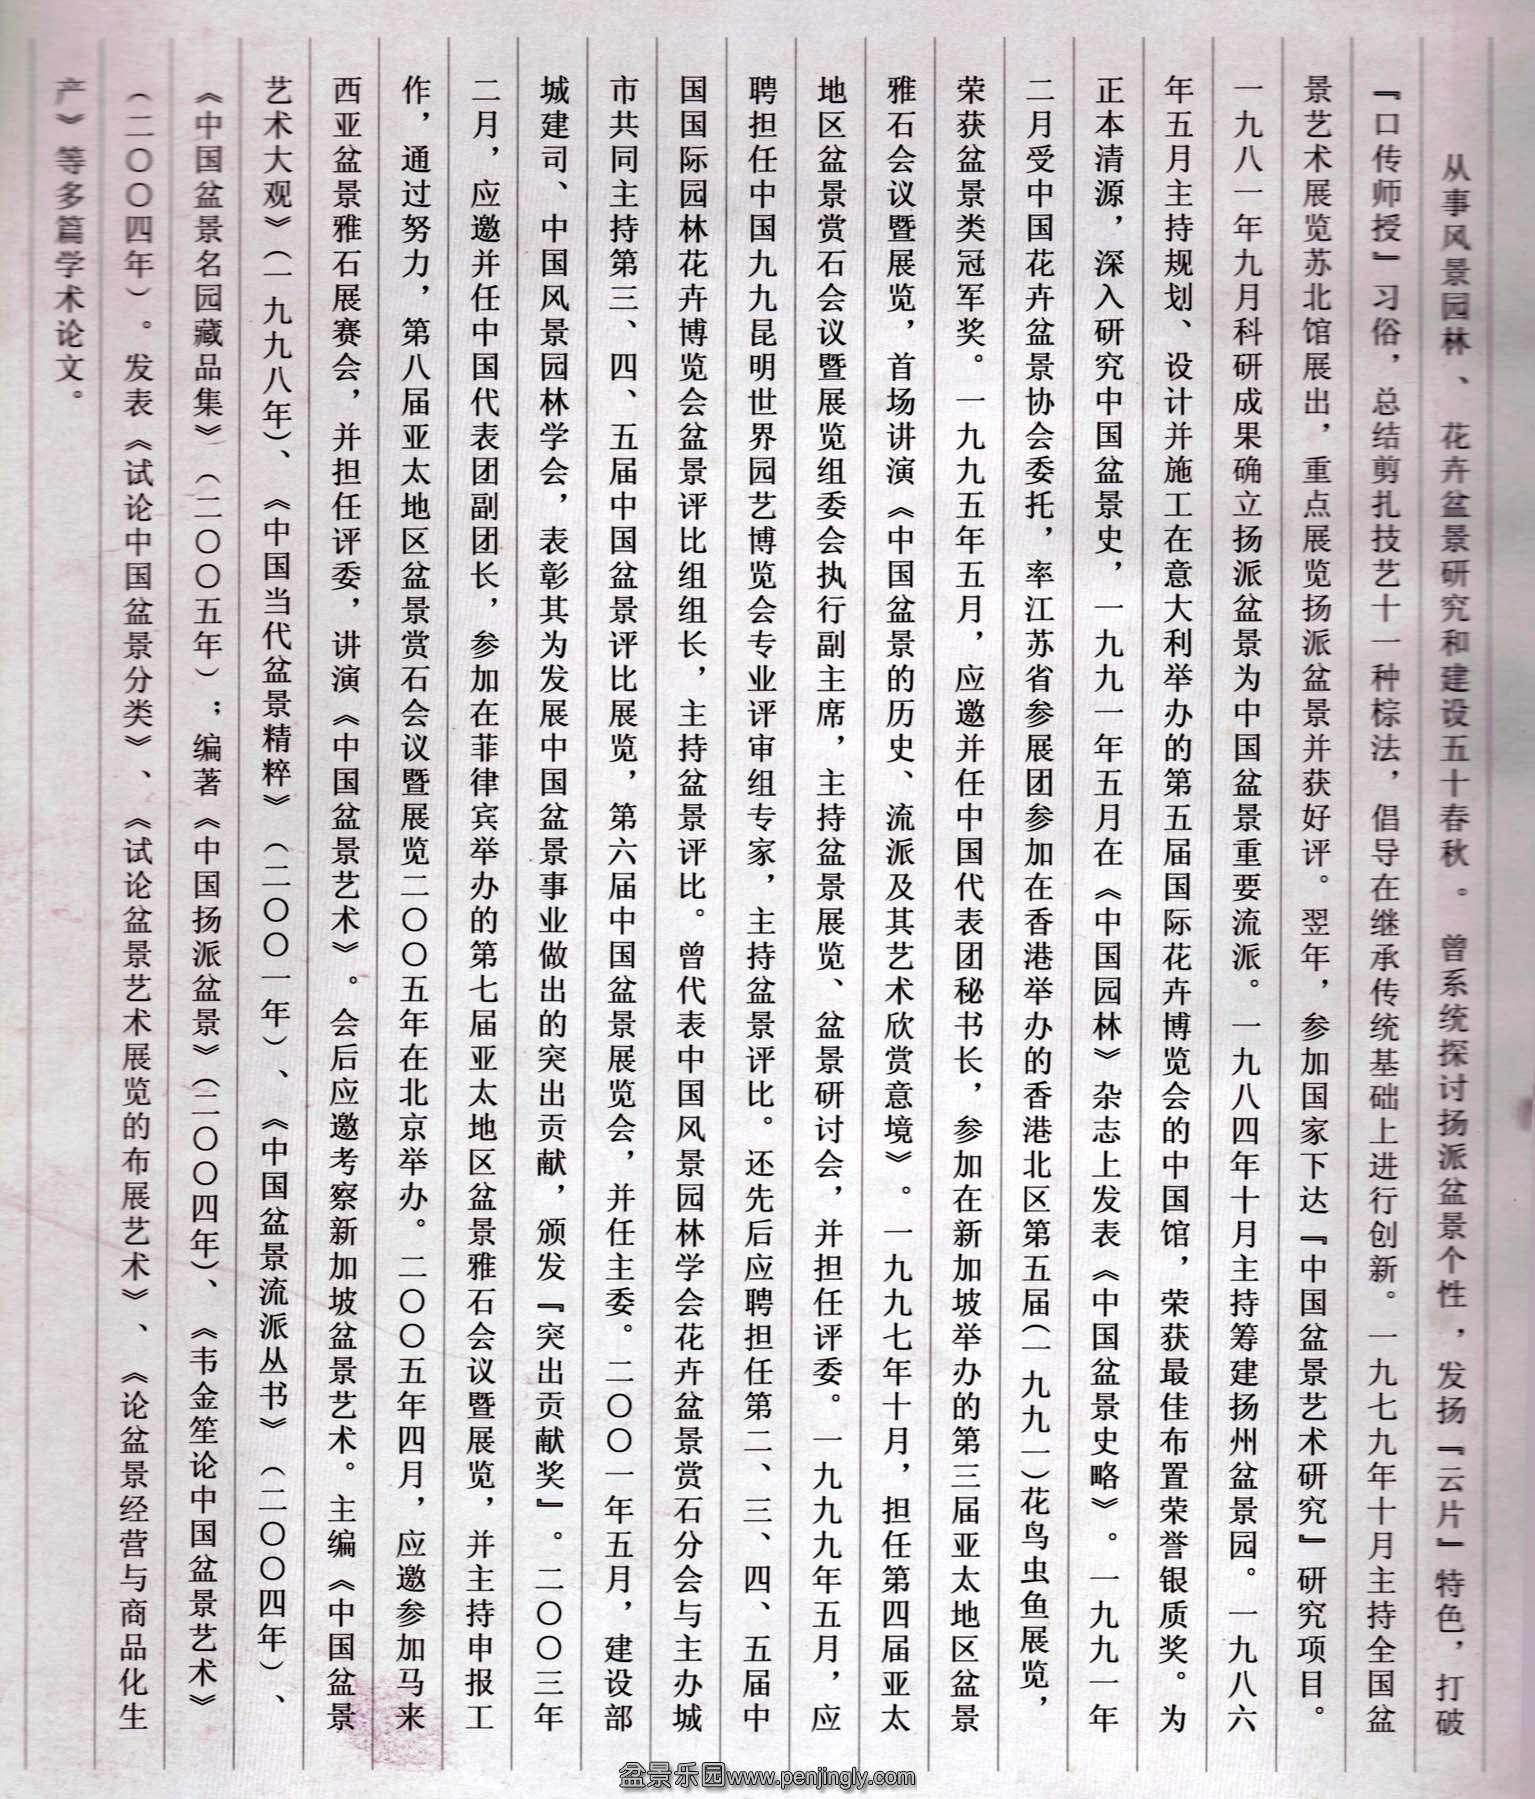 从事风景园林、花卉盆景研究和建设五十春秋。曾系统探讨扬派盆景个性，发扬『云片』特色，打破
『口传师授』习俗，总结剪扎技艺十一种棕法，倡导在继承传统基础上进行创新。一九七九年十月主持全国盆
景艺术展览苏北馆展出，重点展览扬派盆景并获好评。翌年，参加国家下达『中国盆景艺术研究』研究项目。
一九八一年九月科研成果确立扬派盆景为中国盆景重要流派。一九八四年十月主持筹建扬州盆景园。一九八六
年五月主持规划、设计并施工在意大利举办的第五届国际花卉博览会的中国馆，荣获最佳布置荣誉银质奖。为
正本清源，深入研究中国盆景史，一九九一年五月在《中国园林》杂志上发表《中国盆景史略》。一九九一年
二月受中国花卉盆景协会委托，率江苏省参展团参加在香港举办的香港北区第五届（一九九一）花鸟虫鱼展览，
荣获盆景类冠军奖。一九九五年五月，应邀并任中国代表团秘书长，参加在新加坡举办的第三届亚太地区盆景
雅石会议暨展览，首场讲演《中国盆景的历史、流派及其艺术欣赏意境》。一九九七年十月，担任第四届亚太
地区盆景赏石会议暨展览组委会执行副主席，主持盆景展览、盆景研讨会，并担任评委。一九九九年五月，应
聘担任中国九九昆明世界园艺博览会专业评审组专家，主持盆景评比。还先后应聘担任第二、三、四、五届中
国国际园林花卉博览会盆景评比组组长，主持盆景评比。曾代表中国风景园林学会花卉盆景赏石分会与主办城
市共同主持第三、四、五届中国盆景评比展览，第六届中国盆景展览会，并任主委。二〇〇一年五月，建设部
城建司、中国风景园林学会，表彰其为发展中国盆景事业做出的突出贡献，颁发『突出贡献奖』。二〇〇三年
二月，应邀并任中国代表团副团长，参加在菲律宾举办的第七届亚太地区盆景雅石会议暨展览，并主持申报工
作，通过努力，第八届亚太地区盆景赏石会议暨展览二〇〇五年在北京举办。二〇〇五年四月，应邀参加马来
西亚盆景雅石展赛会，并担任评委，讲演《中国盆景艺术》。会后应邀考察新加坡盆景艺术。主编《中国盆景
艺术大观》（一九九八年）、《中国当代盆景精粹》（二〇〇一年）、《中国盆景流派丛书》（二〇〇四年）、
《中国盆景名园藏品集》（二〇〇五年）；编著《中国扬派盆景》（二〇〇四年）、《韦金笙论中国盆景艺术》
（二〇〇四年）。发表《试论中国盆景分类》、《试论盆景艺术展览的布展艺术》、《论盆景经营与商品化生
产》等多篇学术论文。
盆景乐园www.penjingly.com